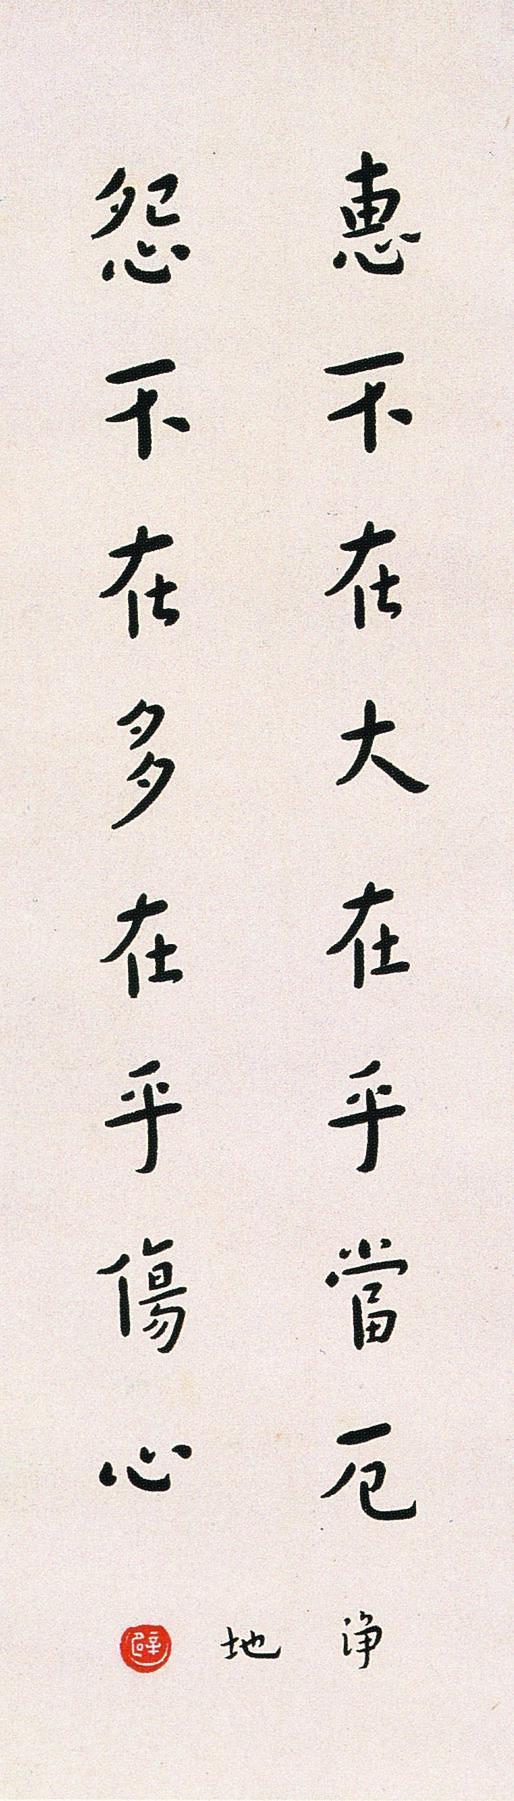 惠不在大在乎當厄
怨不在多在乎傷心
净地